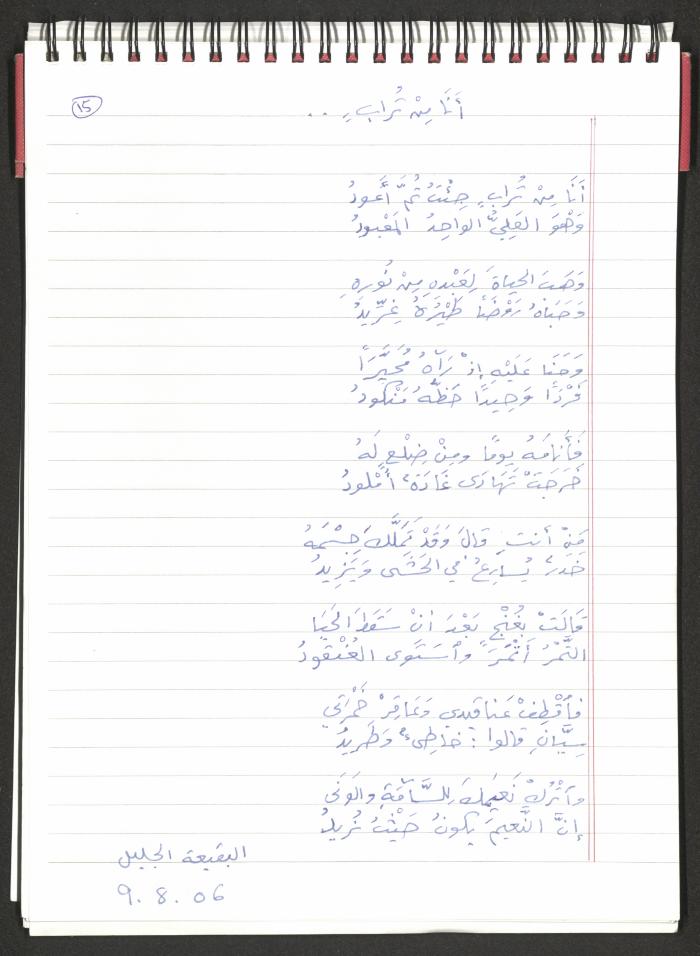 ١٥
أَنَا مِنْ تُرابٍ . . .
أَنَا مِنْ تُرابٍ جِئْتُ ثُمَّ أَعودُ
وَهْوَ العَلِيُّ الواحِدُ المَعْبودُ
وَهَبَ الحياةَ لِعَبْدِهِ مِنْ نُورِهِ
وَحَبَاهُ رَوْضًا طَيْرُهُ غِرِّيدُ
وَحَنَا عَلَيْهِ إذْ رَآهُ مُحَيَّرًا
فَرْدًا وَحِيدًا حَظُّهُ مَنْكودُ
فَأَنامَهُ يومًا ومِنْ ضِلْعٍ لَهُ
خَرَجَتْ تَهَادَى غَادَةٌ أُمْلودُ
مَنْ أنتِ قالَ وَقَدْ تَمَلَّكَ جِسْمَهُ
خَدَرٌ يُسارِعُ في الحَشَى وَيَزِيدُ
قَالَتْ بِغُنْجٍ بَعْدَ أنْ سَقَطَ الحَيَا
التَّمْرُ أَثْمَرَ وٱسْتَوى العُنْقودُ
فٱقْطِفْ عَناقيدي وَعَاقِرْ خَمْرَتي
سِيَّانِ قالوا : خاطِىءٌ وَطَرِيدُ
وٱتْرُكْ نَعيمَكَ لِلسَّآمَةِ والوَنَى
إنَّ النَّعيمَ يَكونُ حَيْثُ نُريدُ
البقيعة الجليل
9. 8. 06